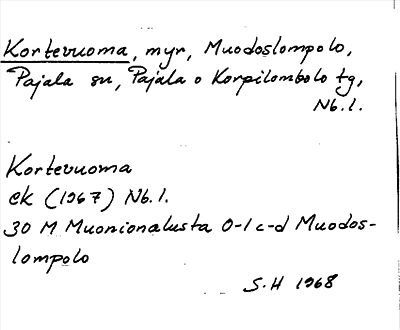 Kortevuoma, myr, Muodoslompolo,
Pajala sn, Pajala o Korpilombolo tg,
Nb.l.
Kortevuoma
ek (1967) Nb.l.
30 M Muonionalusta 0-1 c-d Muodos-
lompolo
S.H 1968